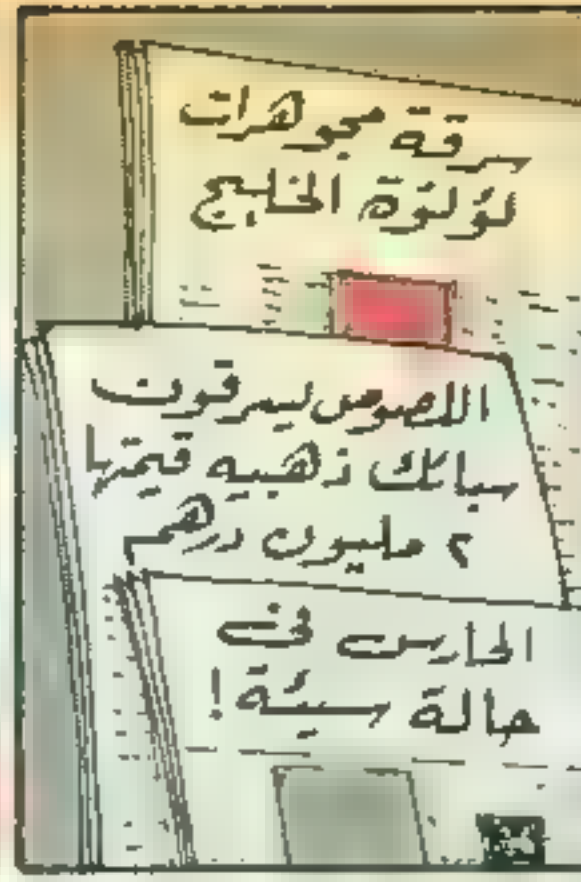 سرقة مجوهرات
لؤلؤة الخليج
اللصوص ليسرقون
سبائك ذهبيه قيمتها
٢ مليون درهم
الحارس فى
حالة سيئة !